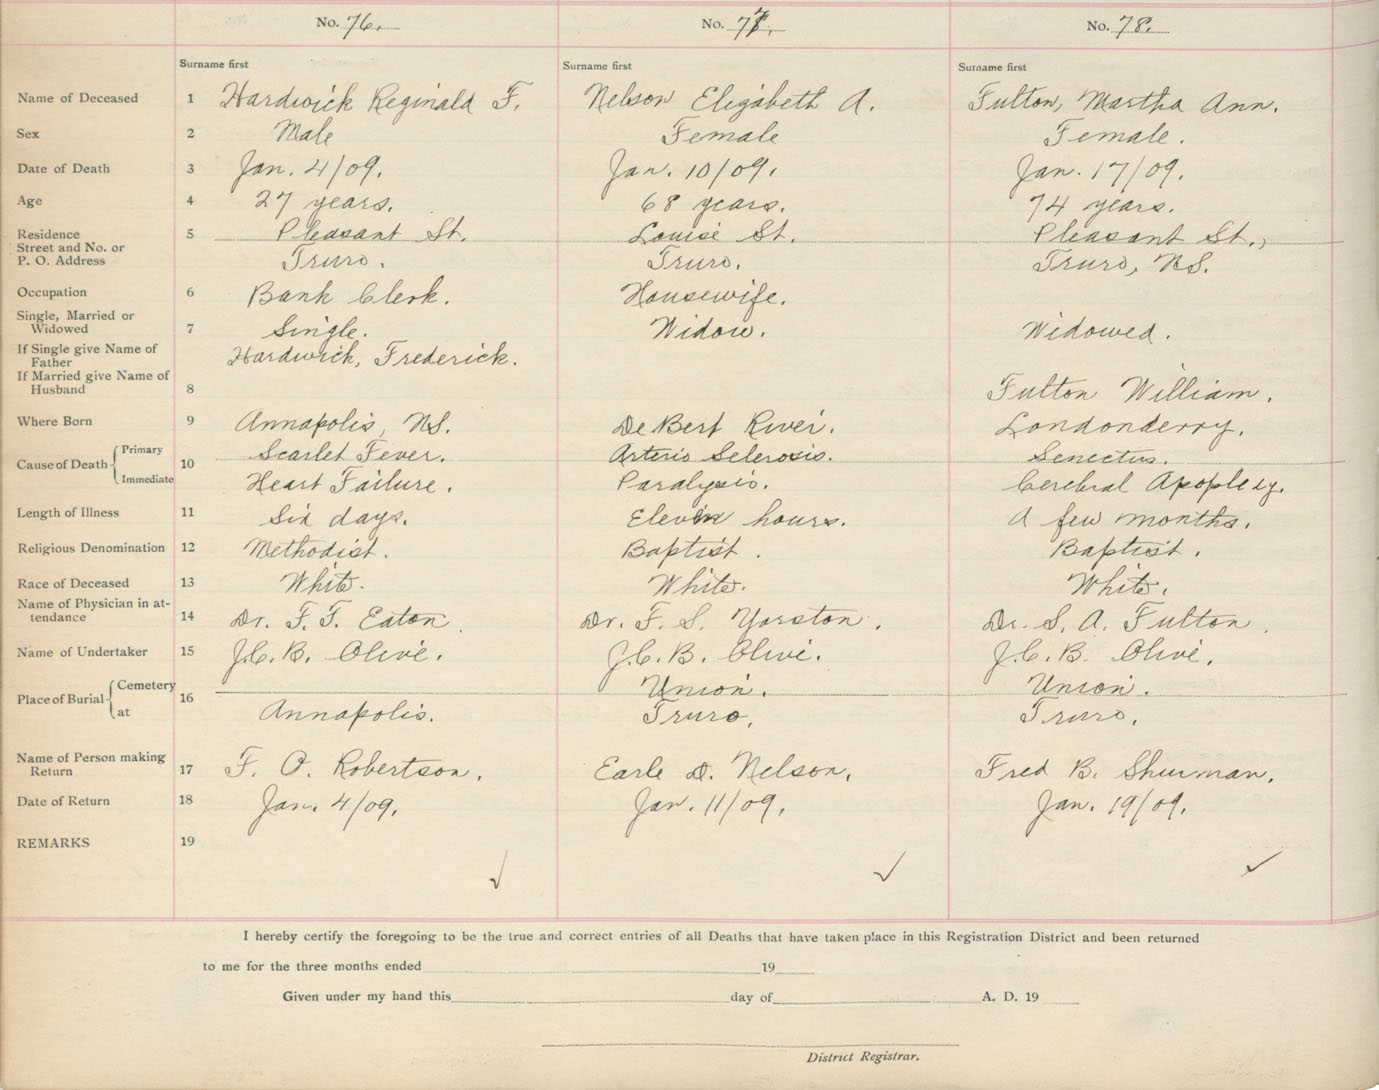 No. 76. No. 77. No. 78.
Surname first Surname first Surname first
Name of Deceased 1 Hardwick Reginald F. Nelson Elizabeth A. Fulton, Martha Ann.
Sex 2 Male Female Female.
Date of Death 3 Jan. 4/09. Jan. 10/09. Jan. 17/09.
Age 4 27 years. 68 years. 74 years.
Residence 5 Pleasant St. Louise St. Pleasant St.,
Street and No. or
P. O. Address Truro. Truro. Truro, N.S.
Occupation 6 Bank Clerk. Housewife.
Single, Married or
Widowed 7 Single. Widow. Widowed.
If Single give Name of
Father Hardwick, Frederick.
If Married give Name of
Husband 8 Fulton William.
Where Born 9 Annapolis, N.S. De Bert River. Londonderry.
Cause of Death Primary 10 Scarlet Fever. Arterio Sclerosis. Senectus.
Immediate Heart Failure. Paralysis. Cerebral Apoplexy.
Length of Illness 11 Six days. Eleven hours. A few months.
Religious Denomination 12 Methodist. Baptist. Baptist.
Race of Deceased 13 White. White. White.
Name of Physician in at-
tendance 14 Dr. F. F. Eaton. Dr. F. S. Yorston. Dr. S. A. Fulton.
Name of Undertaker 15 J.C.B. Olive. J.C.B. Olive. J.C.B. Olive.
Place of Burial Cemetery 16 Union. Union.
at Annapolis. Truro. Truro.
Name of Person making
Return 17 F. O. Robertson. Earle D. Nelson. Fred B. Shurman.
Date of Return 18 Jan. 4/09. Jan. 11/09. Jan. 19/09.
REMARKS 19
I hereby certify the foregoing to be the true and correct entries of all Deaths that have taken place in this Registration District and been returned
to me for the three months ended 19
Given under my hand this day of A. D. 19
District Registrar.